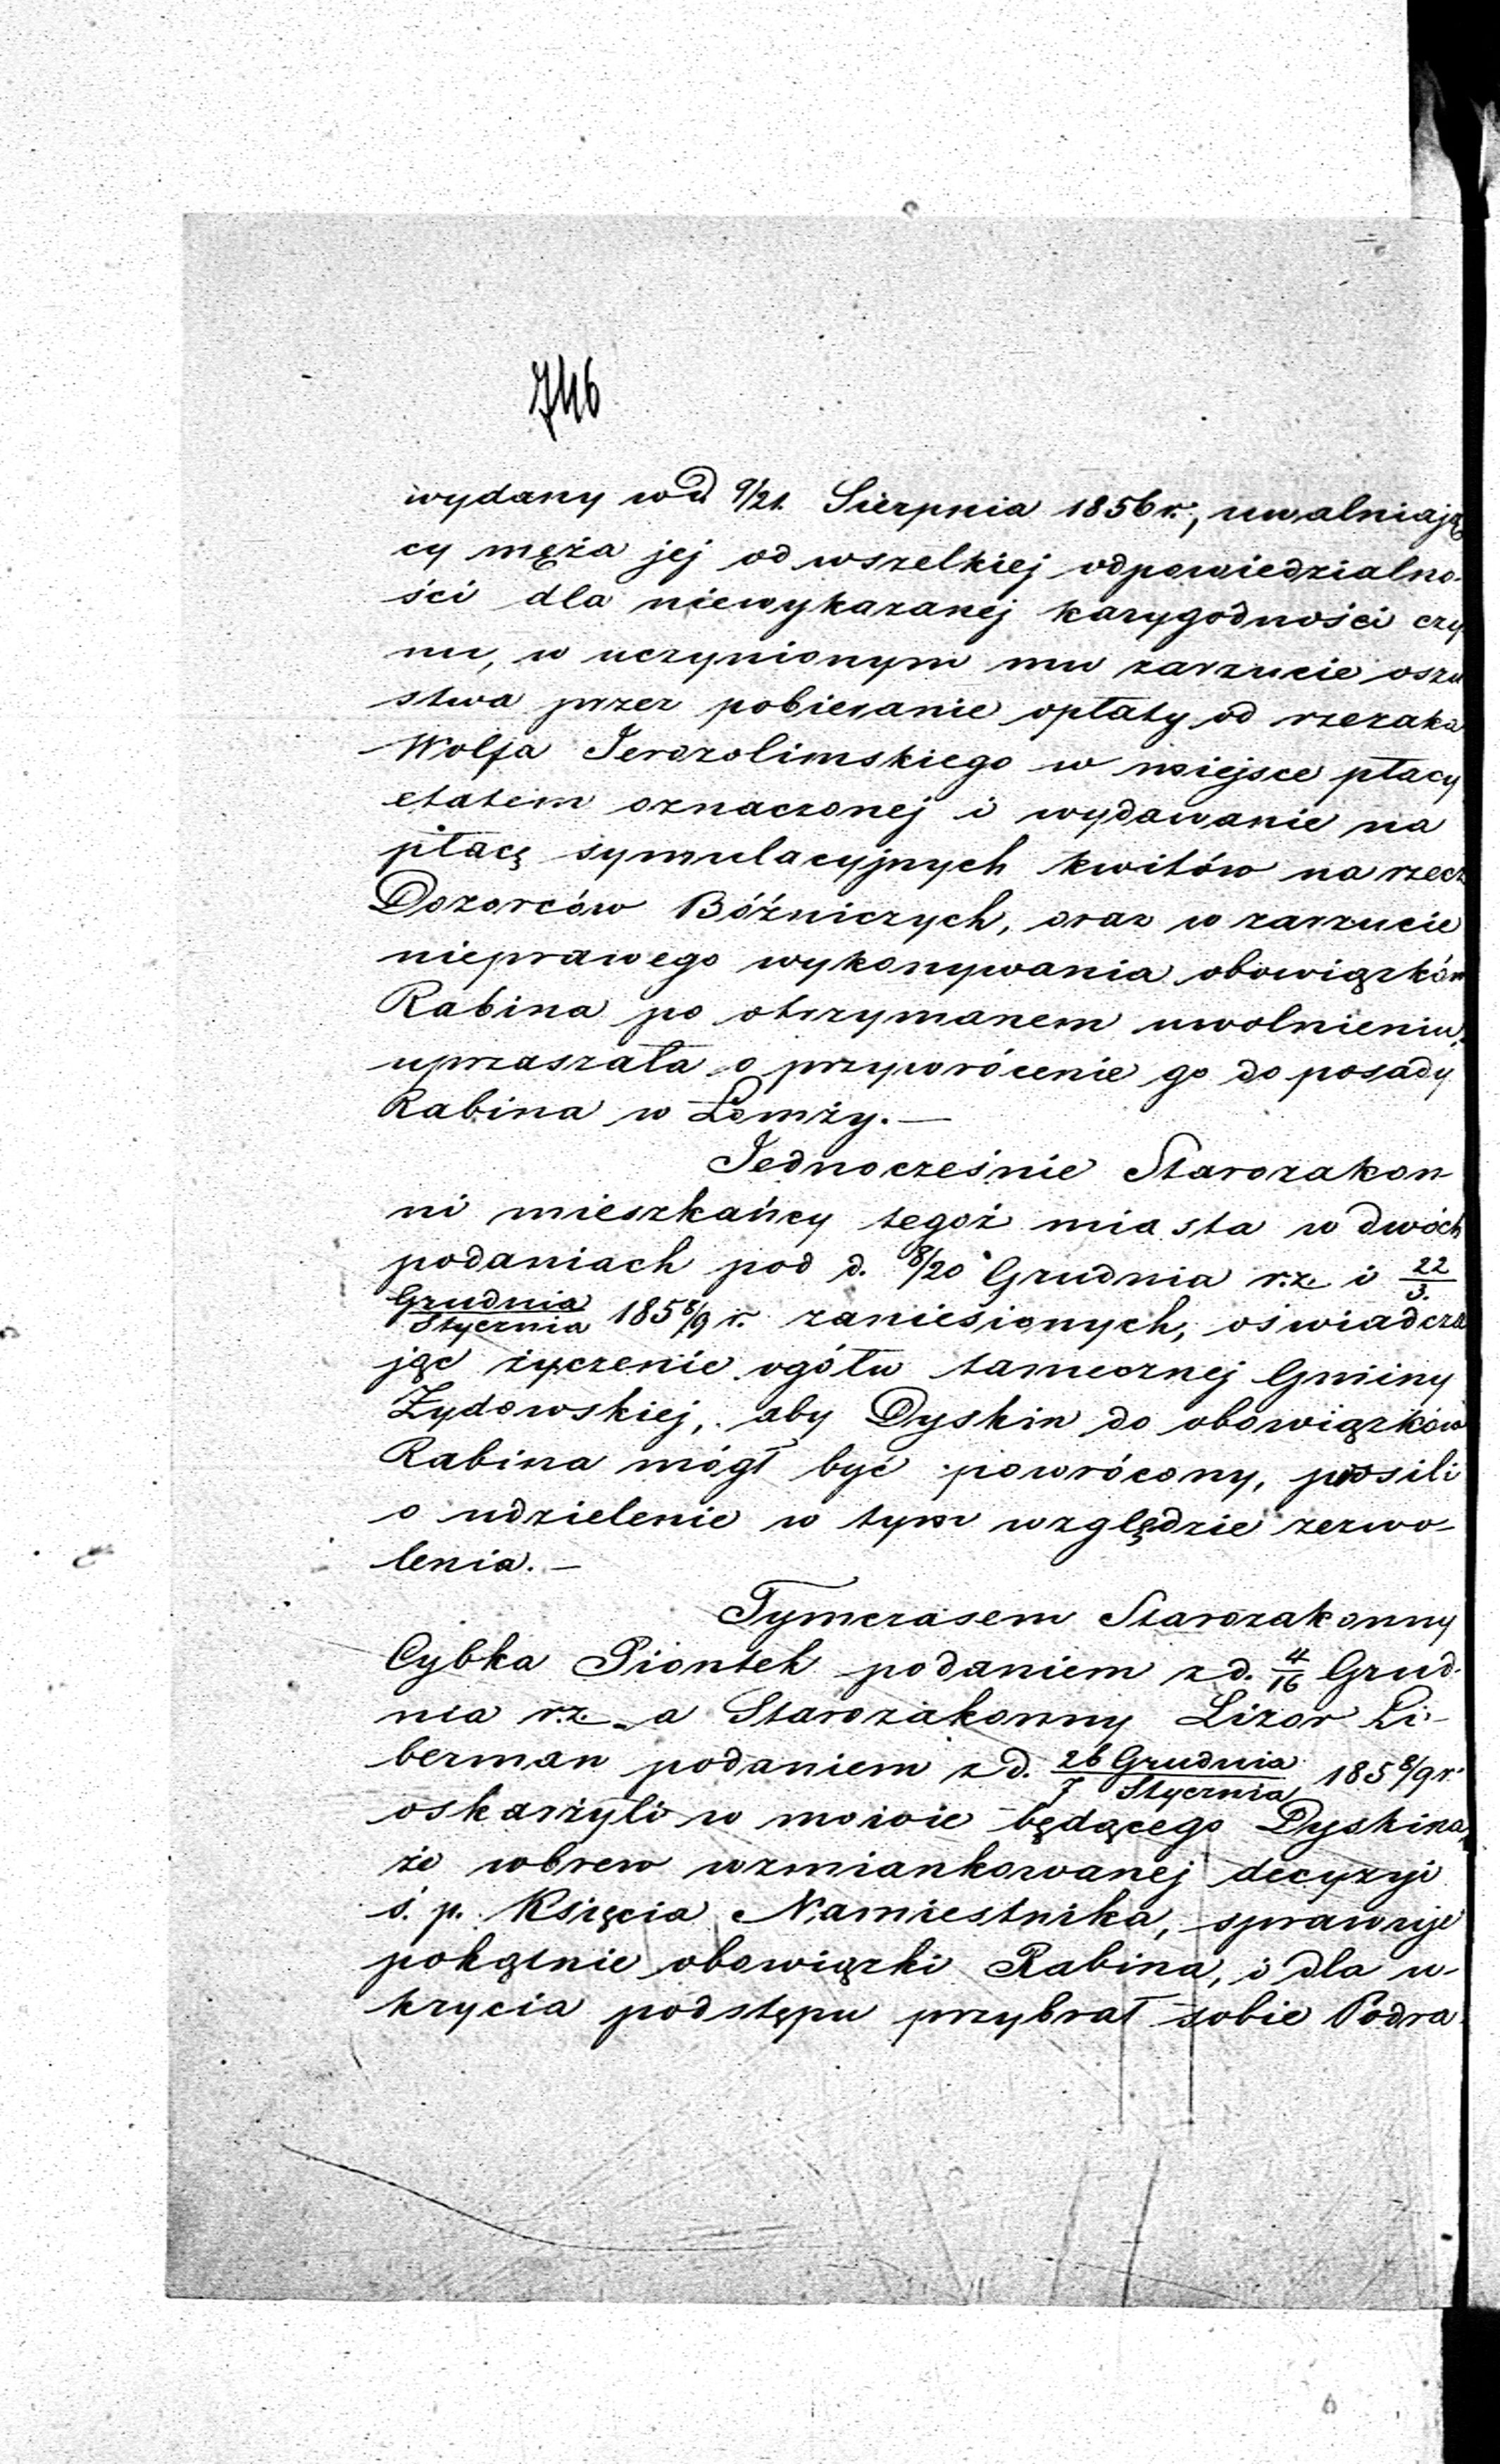 746
wydany w d 9/21. Sierpnia 1856 r., uwalniają
cy męża jej od wszelkiej odpowiedzialno-
ści dla niewykazanej karygodności czy
nu, w uczynionym mu zarzucie oszu
stwa przez pobieranie opłaty od rzezaka
Wolfa Jerozolimskiego w miejsce płacy
etatem oznaczonej i wydawanie na
płacę symulacyjnych kwitów na rzecz
Dozorców Bóżniczych, oraz w zarzucie
nieprawego wykonywania obowiązków
Rabina po otrzymanem uwolnieniu,
upraszała o przywrócenie go do posady
Rabina w Łomży. —
Jednocześnie Starozakon-
ni mieszkańcy tegoż miasta w dwóch
podaniach pod d. 8/20 Grudnia r.z. i 22/3.
Grudnia/Stycznia 1858/9 r. zaniesionych, oświadcza
jąc życzenie ogółu tamecznej Gminy
Żydowskiej, aby Dyskin do obowiązków
Rabina mógł być powrócony, prosili
o udzielenie w tym względzie zezwo-
lenia. —
Tymczasem Starozakonny
Cybka Piontek podaniem z d. 4/16 Grud-
nia r.z. a Starozakonny Lizor Li-
berman podaniem z d. 26 Grudnia/7 Stycznia 1858/9 r.
oskarżyli w mowie będącego Dyskina,
że wbrew wzmiankowanej decyzyi
ś. p. Księcia Namiestnika, sprawuje
pokątnie obowiązki Rabina, i dla u-
krycia podstępu przybrał sobie Podra